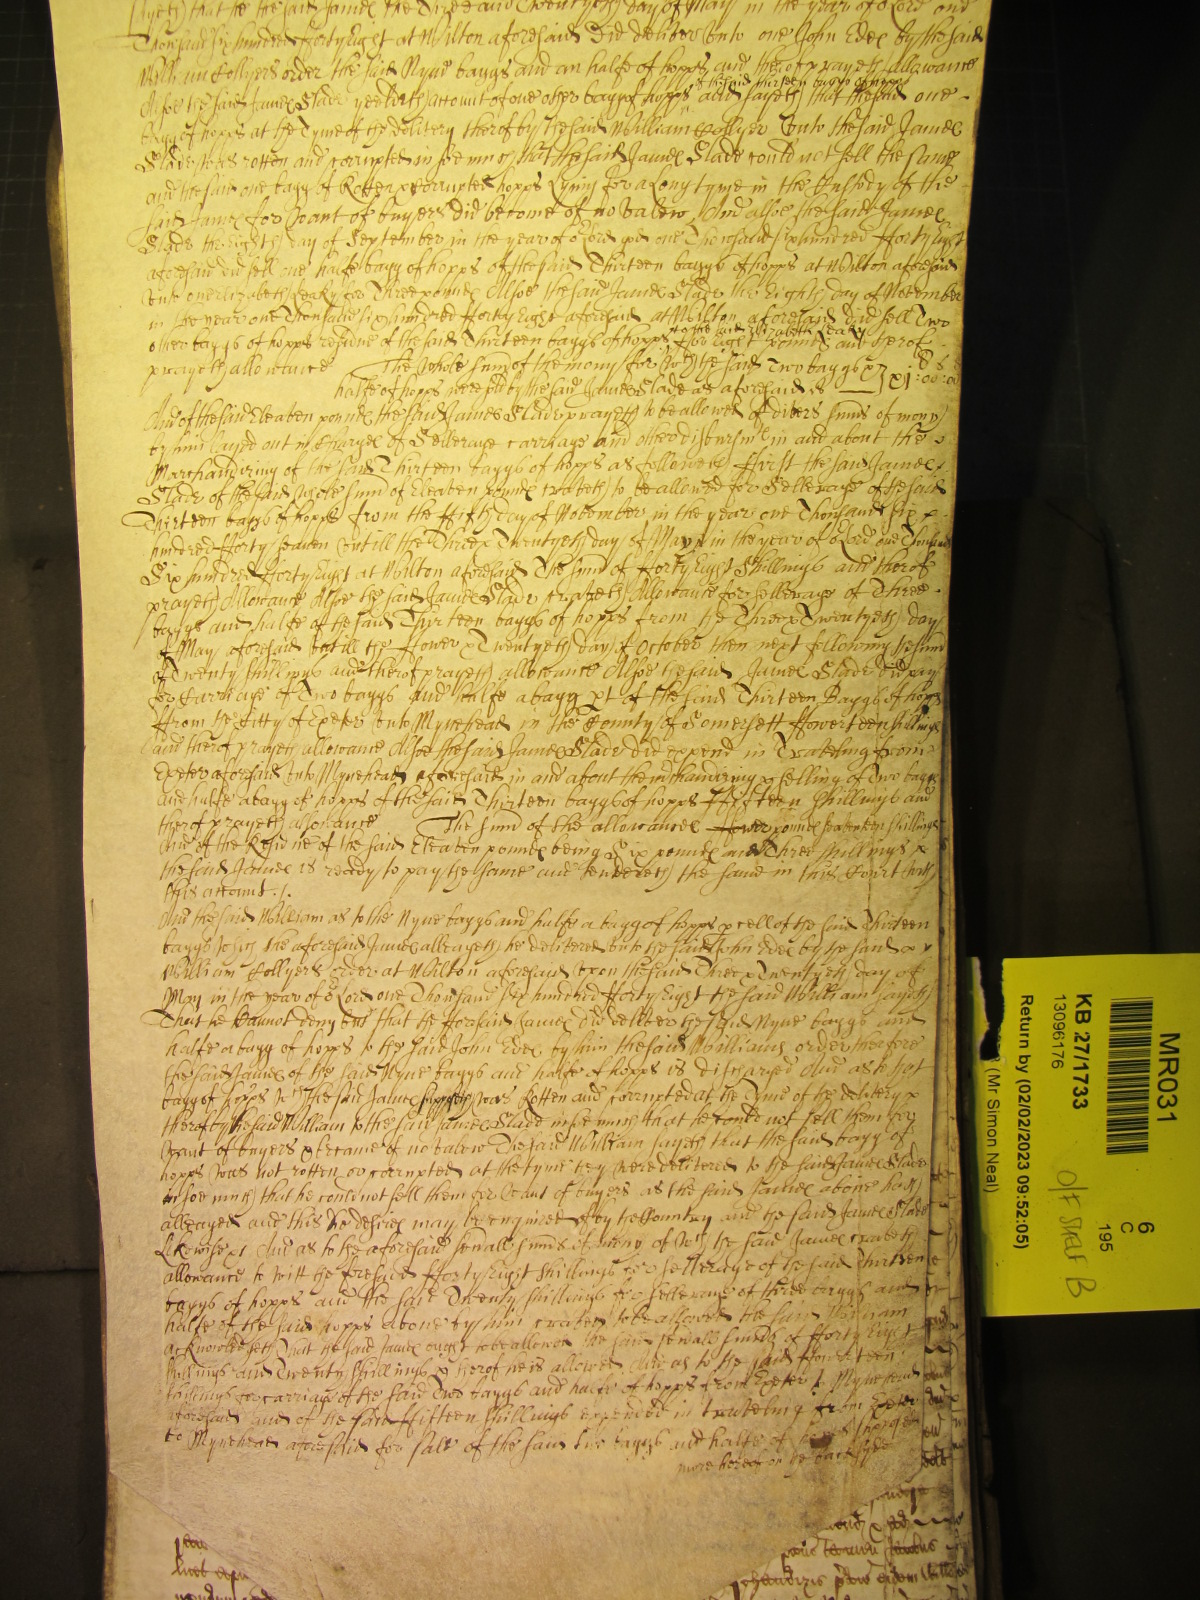 that he the said James the Three and Twentyeth day of May in the yeare of o Lord one
Thousand six hundred fforty Eight at Wilton aforesaid Did deliver unto one John Edex by the said
William Collyers order the said Nyne baggs and an halfe of hopps and therof prayeth Allowance
of the said thirteen baggs of hopps
Alsoe the said James Slade yeeldeth account of one other bagg of hopps and sayeth that the said one
bagg of hopps at the Tyme of the delivery therof by the said William Collyer unto the said James
Slade was rotten and corrupted in soe much that the said James Slade could not sell the same
and the said one bagg of Rotten & corrupted hopps Lying for a Long tyme in the Custody of the
said James for Want of buyers did become of no valew And alsoe the said James
Slade the Eighth day of September in the yeare of o Lord god one Thousand six hundred fforty Eight
aforesaid did sell one halfe bagg of hopps of the said Thirteen baggs of hopps at Wilton aforesaid
unto one Elizabeth Leaky for Three pounds Alsoe the said James Slade the Eighth day of November
in the yeare one Thousand six hundred fforty Eight aforesaid at Wilton aforesaid did sell Two
to the said Elizabeth Leaky
other baggs of hopps residue of the said Thirteen baggs of hopps for Eight pounds and therof
prayeth allowance The whole summ of the mony for wch the said Two baggs &
halfe of hopps were sold by the said James Slade as aforesaid is xi : 00 : 00
And of the said Eleaven pounds the said James Slade prayeth to be allowed of divers summs of mony
by him layed out in Charges of Sellerage carriage and other disbursmts in and about the
Marchandizing of the said Thirteen baggs of hopps as followeth ffirst the said James
Slade of the said whole summ of Eleaven pounds craveth to be allowed for Sellerage of the said
Thirteen baggs of hopps from the ffifth day of November in the yeare one Thousand six
hundred fforty seaven untill the Three & Twentyeth day of May in the yeare of o Lord one Thousand
Six hundred fforty Eight at Wilton aforesaid The summ of fforty Eight Shillings and therof
prayeth Allowance Alsoe the said James Slade craveth Allowance for sellerage of Three
baggs and halfe of the said Thirteen baggs of hopps from the Three & Twentyeth day
of May aforesaid untill the ffower & Twentyeth day of October then next following the summ
of Twenty shillings and therof prayeth allowance Alsoe the said James Slade did pay
for Carriage of Two baggs and halfe a bagg pt of the said Thirteen Baggs of hopps
ffrom the Citty of Exeter unto Mynehead in the County of Somersett ffowerteen shillings
and therof prayeth allowance Alsoe the said James Slade did expend in Travelling from
Exeter aforesaid unto Mynehead aforesaid in and about the mchandizing & selling of Two baggs
and halfe a bagg of hopps of the said Thirteen baggs of hopps ffifteen shillings and
therof prayeth allowance The summ of the allowances ffower pounds seaventeen shillings
And of the Residue of the said Eleaven pounds being Six pounds and Three shillings &
the said James is ready to pay the same and tendereth the same in this Court with
this account ./.
And the said William as to the Nyne baggs and halfe a bagg of hopps pcell of the said Thirteen
baggs which the aforesaid James alleageth he delivered unto the said John Edex by the said
William Collyers order at Wilton aforesaid upon the said Three & Twentyeth day of
May in the yeare of o Lord one Thousand Six hundred fforty Eight the said William sayeth
That he Cannot deny but that the foresaid James did deliver the said Nyne baggs and
halfe a bagg of hopps to the said John Edex by him the said Williams order therefore
the said James of the said Nyne baggs and halfe of hopps is discharged And as to the
bagg of hopps wch the said James supposeth was Rotten and corrupted at the Tyme of the delivery
therof by the said William to the said James Slade insoemuch that he could not sell them for
Want of buyers & became of no valew The said William sayeth that the said bagg of
hopps was not rotten or corrupted at the tyme they were delivered to the said James Slade
in soe much that he could not sell them for want of buyers as the said James above hath
alleaged and this he desires may be enquired of by the Country and the said James Slade
Likewise &c And as to the aforesaid severall summs of mony of wch the said James craveth
allowance to witt the foresaid fforty Eight shillings for sellerage of the said Thirteen
baggs of hopps and the said Twenty shillings for sellerage of three baggs and
halfe of the said hopps above by him craved to be allowed the said William
acknowledgeth that the said James ought to be allowed the said severall summs of fforty Eight
shillings and Twenty shillings & therof he is allowed And as to the said ffowerteen
shillings for carriage of the said Two baggs and halfe of hopps from Exeter to Mynehead
aforesaid and of the said ffifteen shillings expended in travelling from Exeter
to Mynehead aforesaid for sale of the said two baggs and halfe of hopps
more hereof on the back syde
MR031
6
C
195
KB 27/1733
13096176
O/F Shelf B
Return by (02/02/2023 09:52:05)
(Mr Simon Neal)